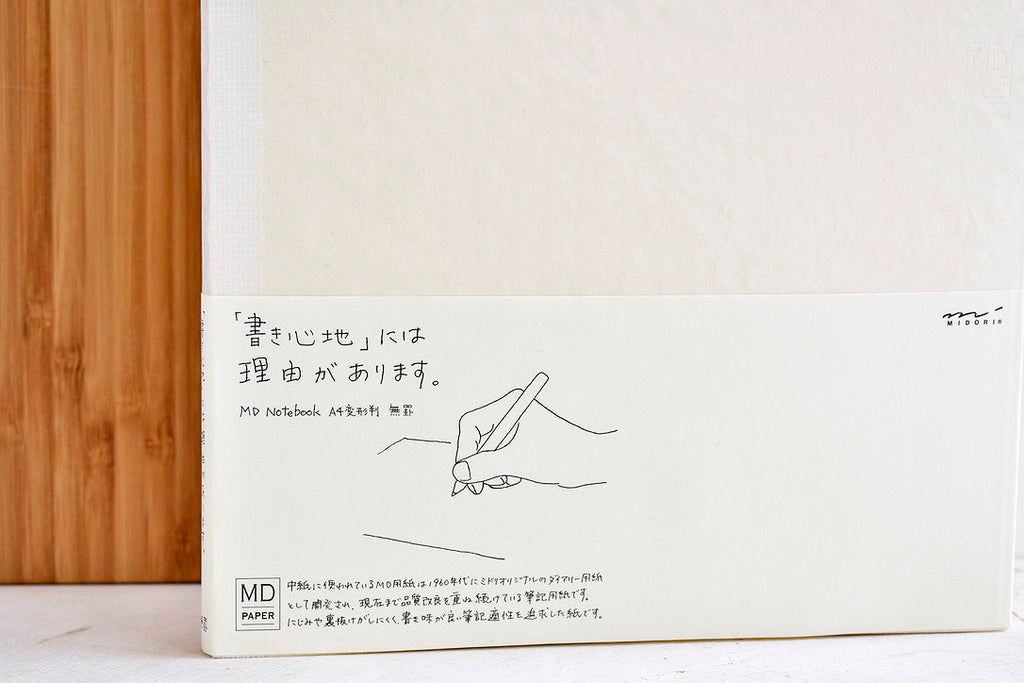 「書き心地」には
理由があります。
MD Notebook A4変形判 無罫
MIDORI®
MD
PAPER
中紙に使われているMD用紙は1960年代にミドリオリジナルのダイアリー用紙
として開発され、現在まで品質改良を重ね続けている筆記用紙です。
にじみや裏抜けがしにくく、書き味が良い筆記適性を追求した紙です。
MD